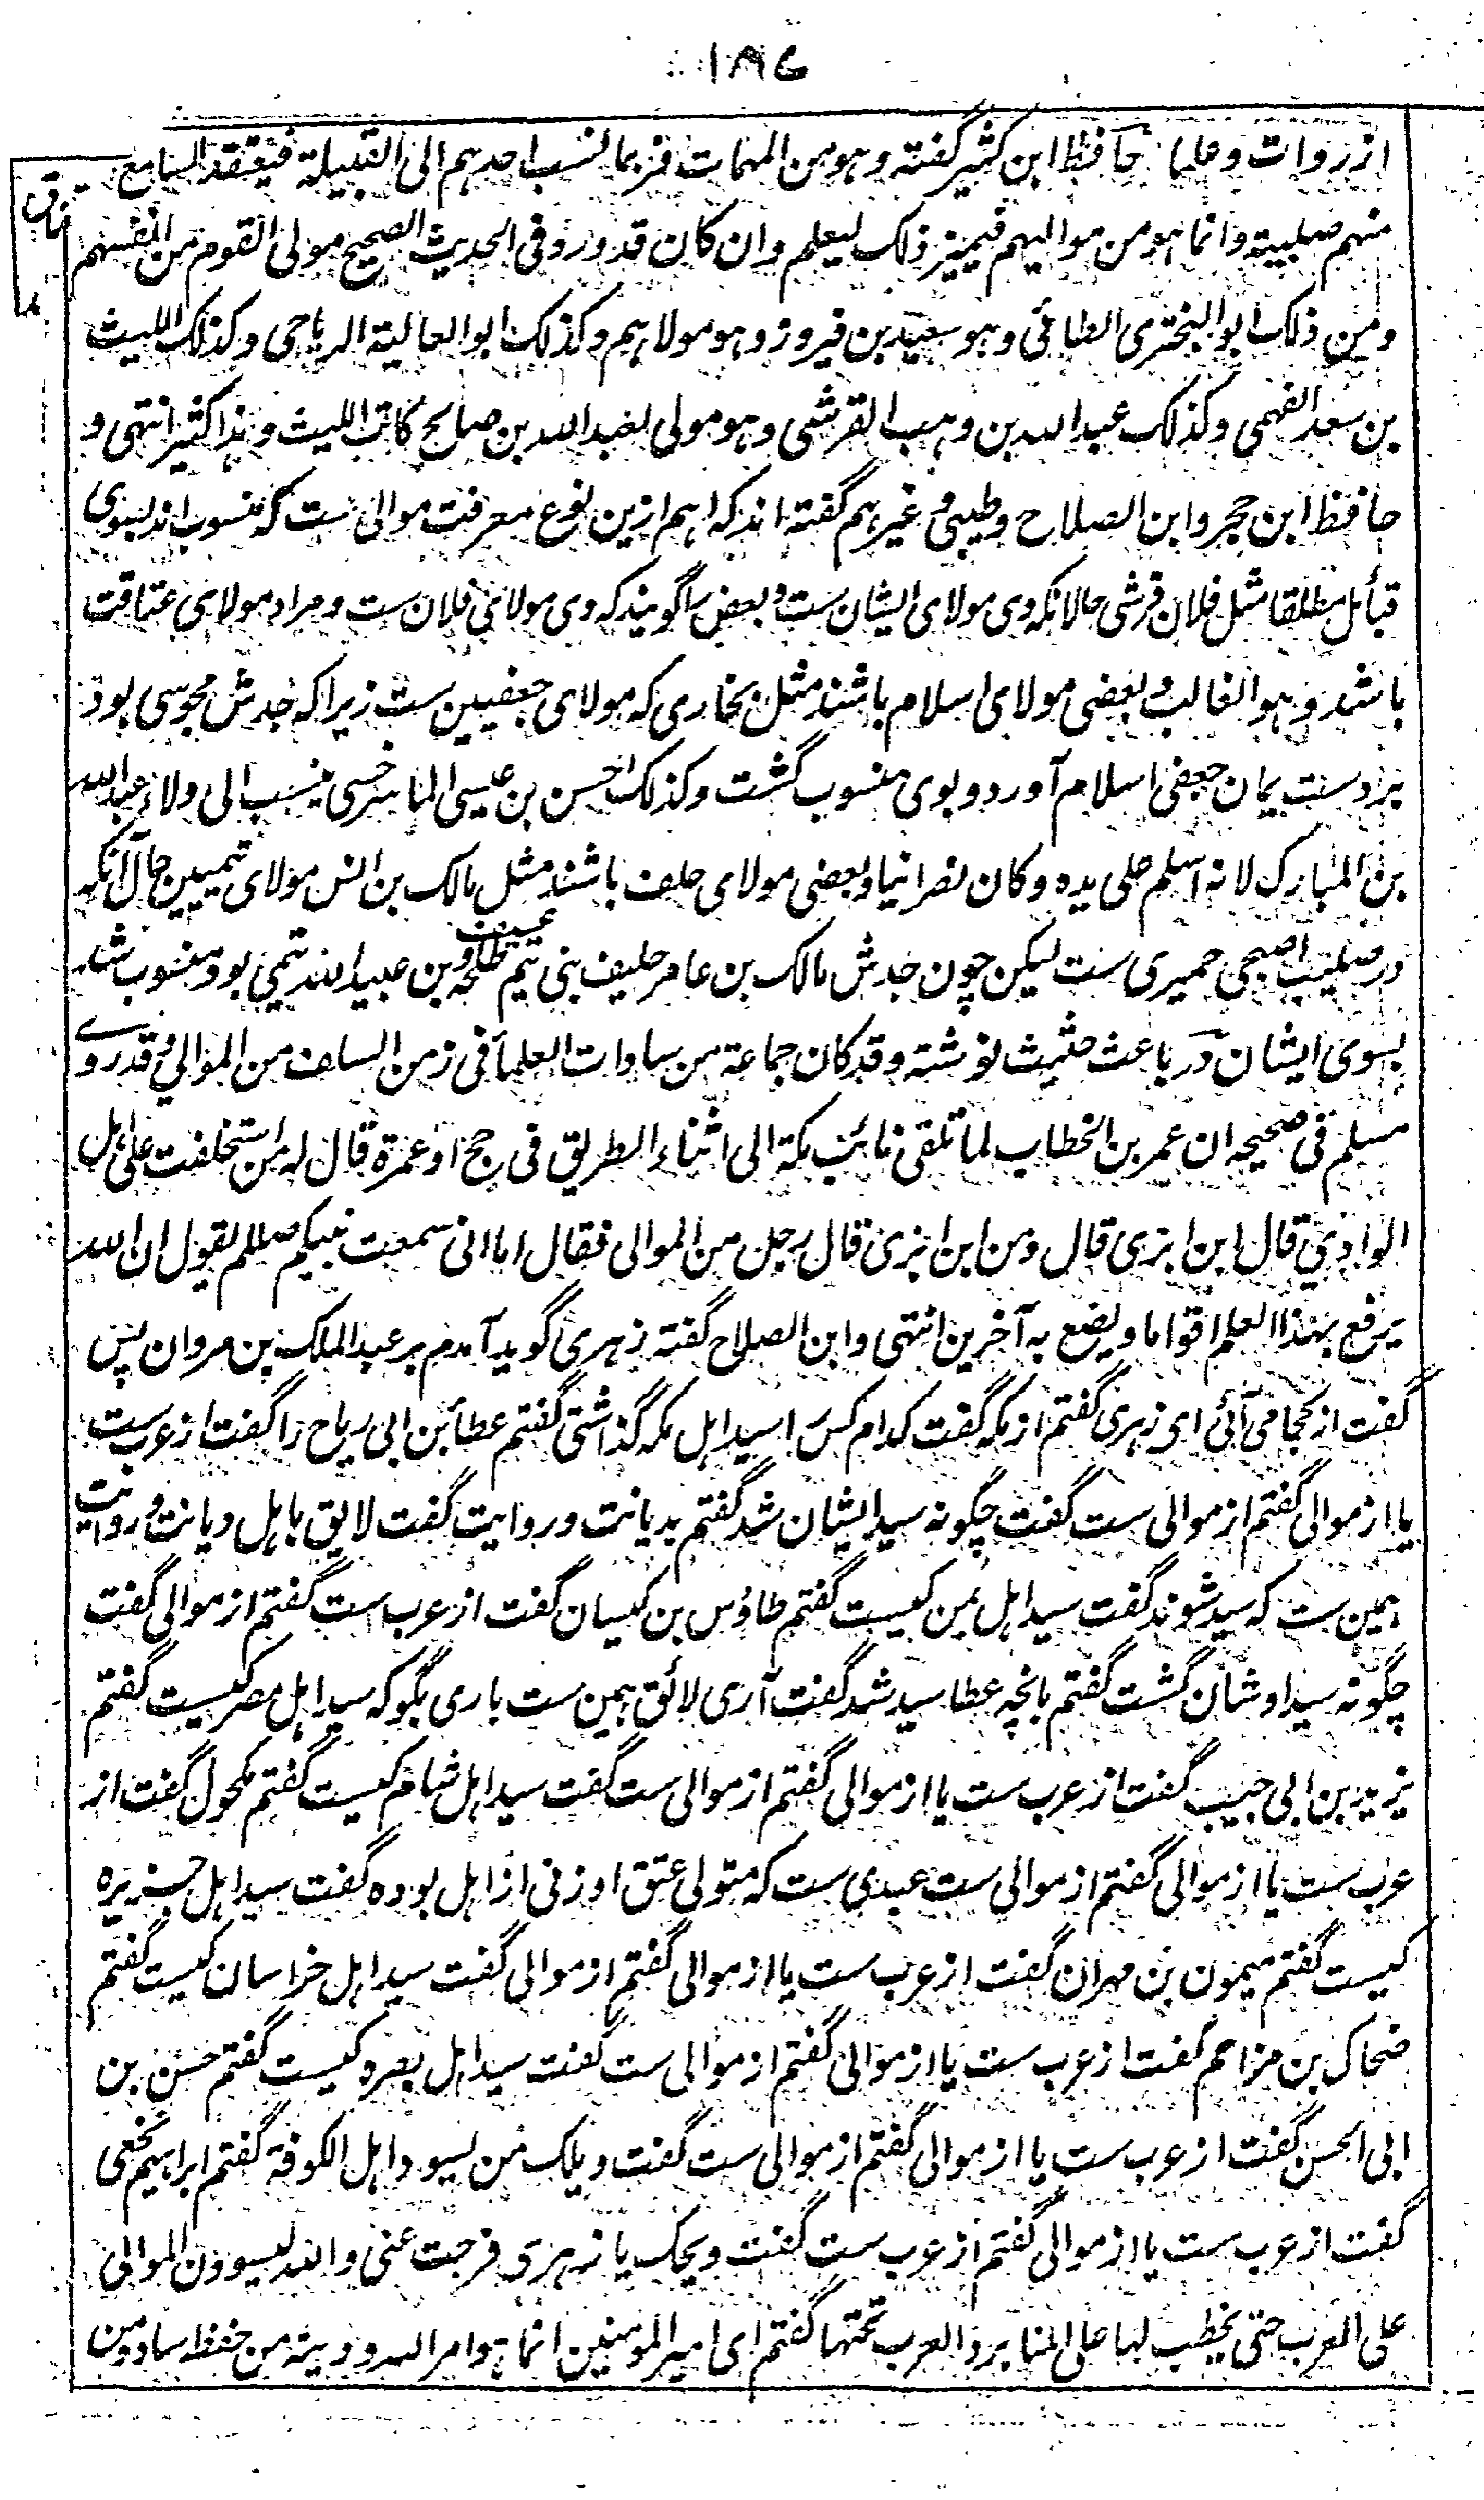 ۱۸۶
از روات و علما حافظ ابن کثیر گفته و هو من المهمات فربما نسب احدهم الی القبیلة فیعتقد السامع
منهم صلیبیة و انما هو من موالیهم فیمیز ذلک لیعلم و ان کان قد ورد فی الحدیث الصحیح مولی القوم من انفسهم
و من ذلک ابو البختری الطائی و هو سعید بن فیروز و هو مولاهم و کذلک ابو العالیة الریاحی و کذلک اللیث
بن سعد الفهمی و کذلک عبدالله بن وهب القرشی و هو مولی لعبدالله بن صالح کاتب اللیث و هذا کثیر انتهی و
حافظ ابن حجر و ابن الصلاح و طیبی و غیرهم گفته اند که اهم ازین نوع معرفت موالی ست که منسوب اند بسوی
قبائل مطلقا مثل فلان قرشی حالانکه وی مولای ایشان ست و بعض را گویند که وی مولای فلان ست و مراد مولای عتاقت
باشد و هو الغالب و بعضی مولای اسلام باشند مثل بخاری که مولای جعفیین ست زیراکه جدش مجوسی بود
بر دست یمان جعفی اسلام آورد و بوی منسوب گشت و کذلک الحسن بن عیسی الماسرخسی ینسب الی ولاء عبدالله
بن المبارک لانه اسلم علی یده و کان نصرانیا و بعضی مولای حلف باشند مثل مالک بن انس مولای تیمیین حال آنکه
در صلیب اصبحی حمیری ست لیکن چون جدش مالک بن عامر حلیف بنی تیم و عسیف طلحه بن عبیدالله تیمی بود منسوب شد
بسوی ایشان در باعث حثیث نوشته و قد کان جماعة من سادات العلماء فی زمن السلف من الموالی و قد روے
مسلم فی صحیحه ان عمر بن الخطاب لما تلقی نائب مکة الی اثناء الطریق فی حج او عمرة قال له من استخلفت علی اهل
الوادی قال ابن ابزی قال و من ابن ابزی قال رجل من الموالی فقال اما انی سمعت نبیکم صللم یقول ان الله
یرفع بهذا العلم اقواما و یضع به آخرین انتهی و ابن الصلاح گفته زهری گوید آمدم بر عبدالملک بن مروان پس
گفت از کجا می آئی ای زهری گفتم از مکه گفت کدام کس را سید اهل مکه گذاشتی گفتم عطاء بن ابی رباح را گفت از عرب ست
یا از موالی گفتم از موالی ست گفت چگونه سید ایشان شد گفتم بدیانت و روایت گفت لایق باهل دیانت و روایت
همین ست که سید شوند گفت سید اهل یمن کیست گفتم طاؤس بن کیسان گفت از عرب است گفتم از موالی گفت
چگونه سید اوشان گشت گفتم بانچه عطا سید شد گفت آری لائق همین ست باری بگو که سید اهل مصر کیست گفتم
یزید بن ابی حبیب گفت از عرب ست یا از موالی گفتم از موالی ست گفت سید اهل شام کیست گفتم مکحول گفت از
عرب ست یا از موالی گفتم از موالی ست عبدی ست که متولی عتق او زنی از اهل بوده گفت سید اهل جزیره
کیست گفتم میمون بن مهران گفت از عرب ست یا از موالی گفتم از موالی گفت سید اهل خراسان کیست گفتم
ضحاک بن مزاحم گفت از عرب ست یا از موالی گفتم از موالی ست گفت سید اهل بصره کیست گفتم حسن بن
ابی الحسن گفت از عرب ست یا از موالی گفتم از موالی ست گفت ویلک من یسود اهل الکوفة گفتم ابراهیم نخعی
گفت از عرب ست یا از موالی گفتم از عرب ست گفت ویحک یا زهری فرجت عنی والله لیسودن الموالی
علی العرب حتی یخطب لها علی المنابر و العرب تحتها گفتم ای امیر المومنین انما هو امر الله و دینه من حفظه ساد و من